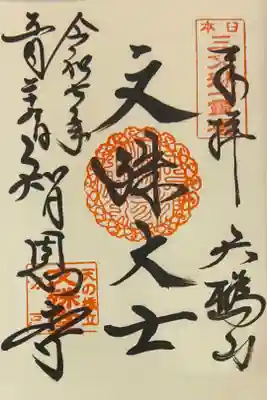 日本
三文殊第一霊場
奉拝
天橋山
文殊大士
令和七年
智恩寺
天の橋立